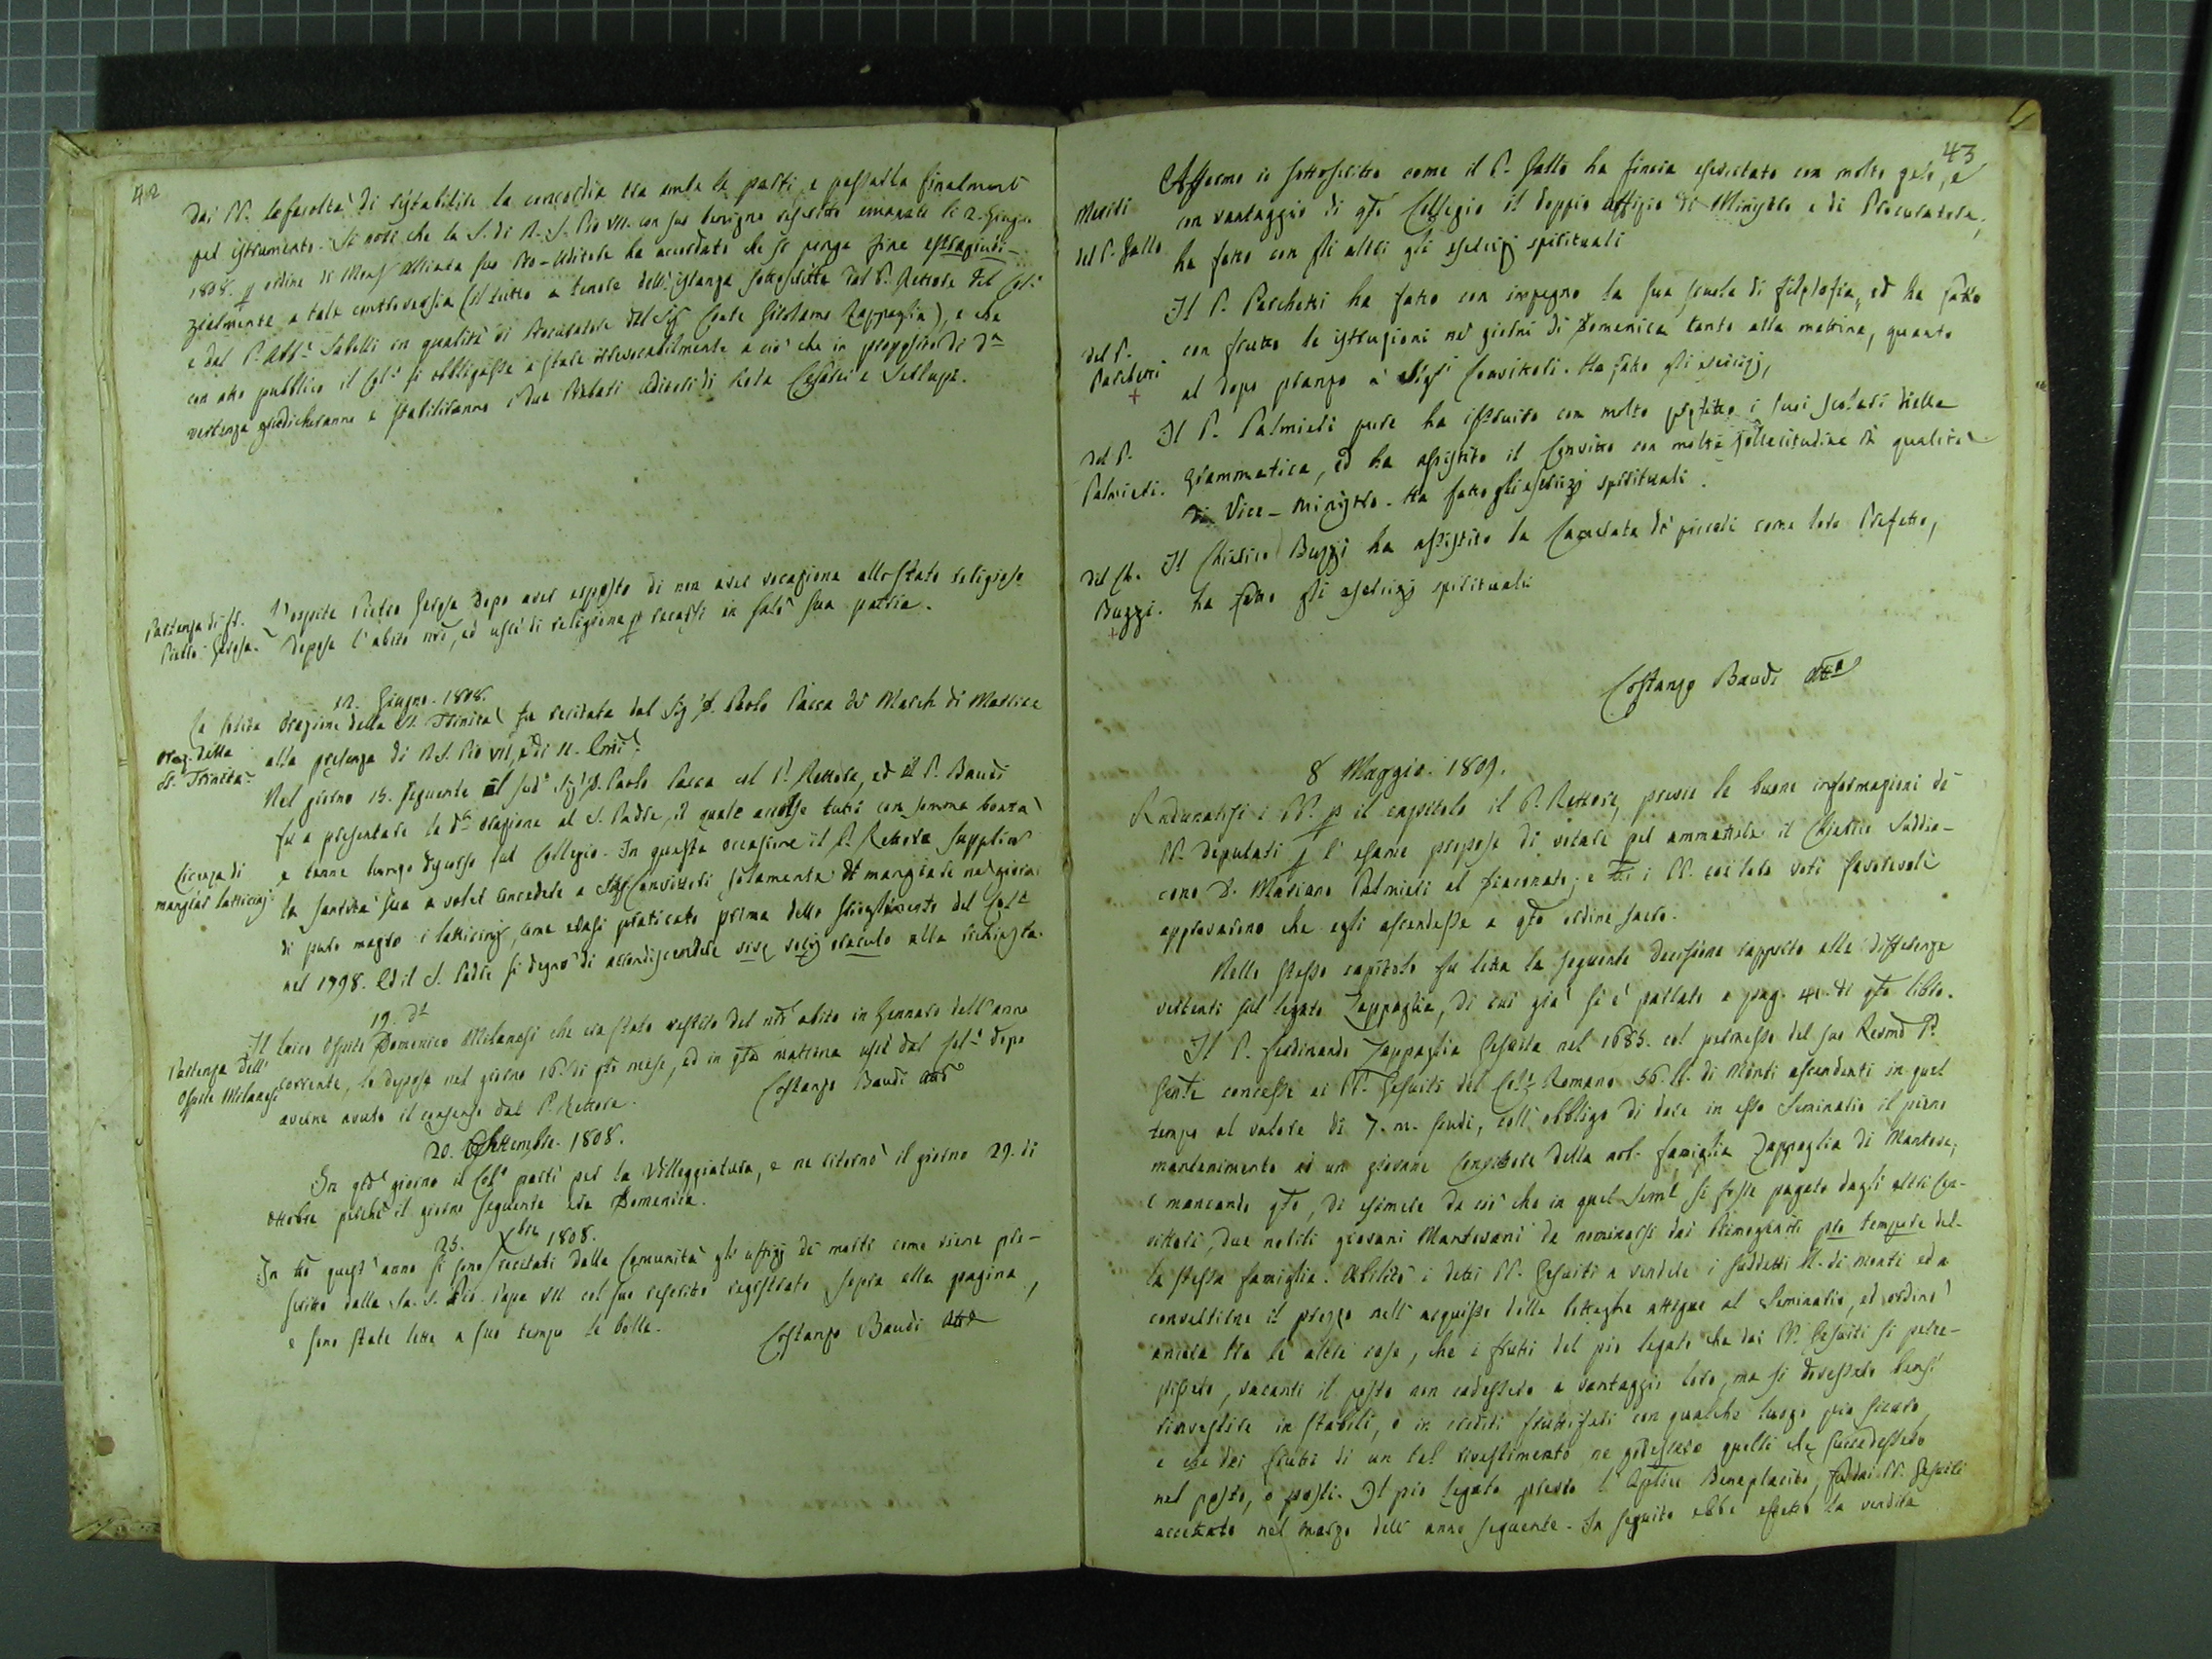 42
Dai PP. la facoltà di ristabilire la concordia tra ambe le parti, e passarla finalmente
per istrumento. Si noti che la S. di N. S. Pio VII. con suo benigno rescritto emanato li 2. Giugno
1808. p ordine di Mons Alliata suo Pro-Uditore ha accordato che si ponga fine estragiudi-
zialmente a tale controversia (il tutto a tenore dell'istanza sottoscritta dal P. Rettore del Col.o
e dal P. Abb.e Sabelli in qualità di Procuratore del Sig Conte Girolamo Zappaglia), e che
con atto pubblico il Col.o si obbligasse a stare irrevocabilmente a ciò che in proposito di da
vertenza giudicheranno e stabiliranno i due Abbati Uditori di Rota Cesarei e Serlupi.
Partenza di
Pietro Gerosa.
L'ospite Pietro Gerosa dopo aver esposto di non aver vocazione allo stato religioso
depose l'abito nro, ed uscì di religione p recarsi in Salò sua patria.
12. Giugno. 1808.
Oraz. della
SS. Trinità
La solita Orazione della SS. Trinità fu recitata dal Sig D. Paolo Pacca de' March. di Matrice
alla presenza di N. S. Pio VII, e di 11. Emi.
Nel giorno 15. seguente il sud.o Sig D. Paolo Pacca col P. Rettore, ed il P. Baudi
fu a presentare la da orazione al S. Padre, il quale accolse tutti con somma bontà
Licenza di
mangiar latticinj
e tenne lungo discorso sul Collegio. In questa occasione il P. Rettore supplicò
la Santità sua a voler concedere a Sigi Convittori solamente di mangiare ne' giorni
di puro magro i latticinj, come erasi praticato prima dello scioglimento del Col.o
nel 1798. Ed il S. Padre si degnò di accondiscendere vivæ vocis oraculo alla richiesta.
19. do
Partenza dell'
Ospite Milanesi
Il laico Ospite Domenico Milanesi che era stato vestito del nro abito in Gennaro dell'anno
corrente, lo depose nel giorno 16. di qto mese, ed in qta mattina uscì dal Col.o dopo
averne avuto il consenso dal P. Rettore. Costanzo Baudi Att.o
20. Settembre. 1808.
In qto giorno il Col.o partì per la Villeggiatura, e ne ritornò il giorno 29. di
Ottobre perchè il giorno seguente era Domenica.
25. Xbre 1808.
In tto quest'anno si sono recitati dalla Comunità gli uffizj de' morti come viene pre-
scritto dalla Sa. S. Pio Papa VII col suo rescritto registrato sopra alla pagina ,
e sono state lette a suo tempo le bolle. Costanzo Baudi Att.o
43
Meriti
del P. Gallo
Affermo io sottoscritto come il P. Gallo ha finora esercitato con molto zelo, e
con vantaggio di qto Collegio il doppio uffizio di Ministro e di Procuratore,
ha fatto con gli altri gli esercizj spirituali
del P.
Parchetti
+
Il P. Parchetti ha fatto con impegno la sua scuola di filosofia, ed ha fatto
con frutto le istruzioni ne' giorni di Domenica tanto alla mattina, quanto
al dopo pranzo a' Sigri Convittori. Ha fatto gli esercizj,
del P.
Palmieri.
Il P. Palmieri pure ha istruito con molto profitto i suoi scolari nella
Grammatica, ed ha assistito il Convitto con molta sollecitudine in qualità
di Vice-Ministro. Ha fatto gli esercizj spirituali.
del Ch.
Buzzi.
+
Il Chierico Buzzi ha assistito la Camerata de' piccoli come loro Prefetto,
ha fatto gli esercizj spirituali
Costanzo Baudi Att.o
8 Maggio. 1809.
Radunatisi i PP. p il capitolo il P. Rettore, previe le buone informazioni de'
PP. deputati p l'esame propose di votare per ammettere il Chierico Suddia-
cono D. Mariano Palmieri al Diaconato; e tti i PP. coi loro voti favorevoli
approvarono che egli ascendesse a qto ordine sacro.
Nello stesso capitolo fu letta la seguente decisione rapporto alle differenze
vertenti sul legato Zappaglia, di cui già si è parlato a pag. 41. di qto libro.
Il P. Ferdinando Zappaglia Gesuita nel 1685. col permesso del suo Revmo P.
Gnle concesse ai PP. Gesuiti del Col.o Romano 56. ll. di Monti ascendenti in quel
tempo al valore di 7. m. scudi, coll'obbligo di dare in esso Seminario il pieno
mantenimento ad un giovane Convittore della nob. famiglia Zappaglia di Mantova;
e mancando qto, di esimere da ciò che in quel Semi.o si fosse pagato dagli altri Con-
vittori, due nobili giovani Mantovani da nominarsi dai Primogeniti pro tempore del-
la stessa famiglia. Abilitò i detti PP. Gesuiti a vendere i suddetti ll. di Monti ed a
convertirne il prezzo nell'acquisto delle botteghe attigue al Seminario, ed ordinò
ancora tra le altre cose, che i frutti del pio legato che dai PP. Gesuiti si perce-
pissero, vacanti il posto non cadessero a vantaggio loro, ma si dovessero bensì
rinvestire in stabili, o in crediti fruttiferi con qualche luogo pio sicuro,
e che dei frutti di un tal rivestimento ne godessero quelli che succedessero
nel posto, o posti. Il pio legato previo l'Aplico Beneplacito, fu dai PP. Gesuiti
accettato nel Marzo dell'anno seguente. In seguito ebbe effetto la vendita